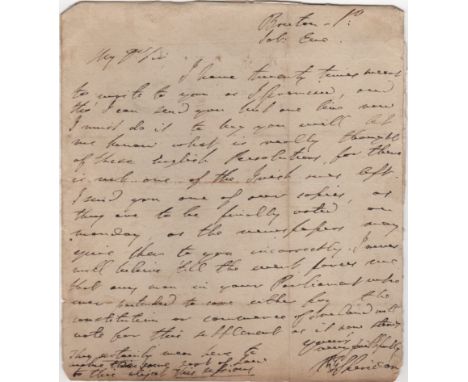 Bruton-St:
Sat: Eve.
My Dr Sir
I have twenty times meant
to write to you as I promised, and
tho' I can send you but one line now
I must do it to beg you will let
me know what is really thought
of these English Resolutions, for there
is not one of the Irish ones left.
I send you one of our copies, as
they are to be finally voted on
monday as the newspapers may
give them to you incorrectly. I never
will believe till the event forces me
that any man in your Parliament who
ever pretended to care either for the
constitution or commerce of Ireland will
vote for this settlement as it now stands
yours
very faithfully
They certainly mean here to
RB Sheridan
to this effect this sessions